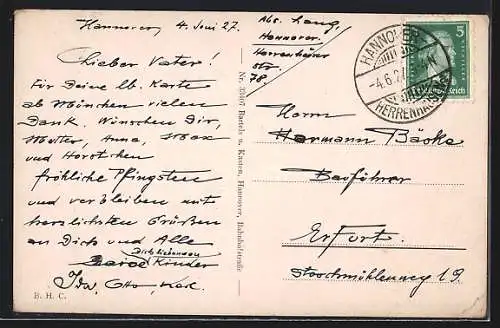 Hannover, 4. Juni 27.
Lieber Vater!
Für Deine lb. Karte
ab München vielen
Dank. Wünschen Dir,
Mutter, Anna, Max
und Horstchen
fröhliche Pfingsten
und verbleiben mit
herzlichsten Grüßen
an Dich und Alle
Dich liebenden
Kinder
Ida, Otto,
B. H. C.
Nr. 33407 Bartels u. Kasten, Hannover, Bahnhofstraße
Abs. Lang,
Hannover.
Herrenhäuser
str
78.
HANNOVER
-4.6.27
HERRENHAUSEN
5
Herrn
Hermann Bäske
Bauführer
Erfurt.
Steochmühlenweg 19.